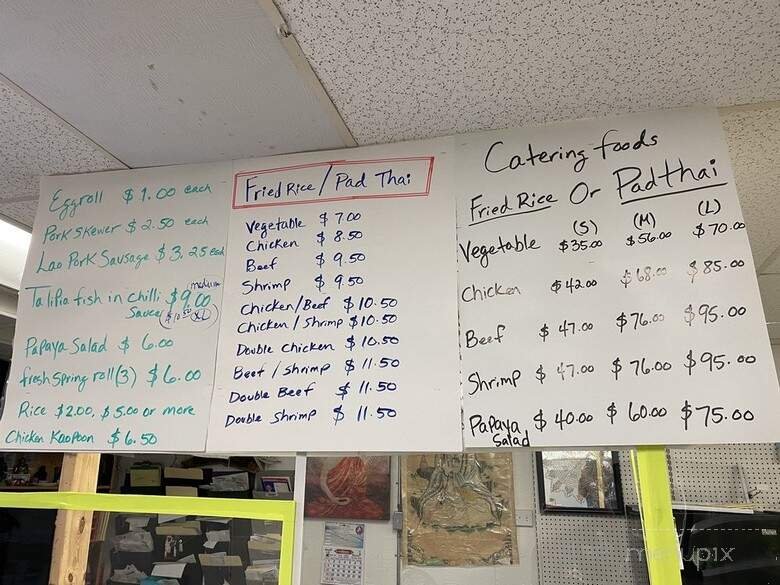 Eggroll $1.00 each
Pork Skewer $2.50 each
Lao Pork Sausage $3.25 each
Talipia fish in chilli $9.00 medium
Sauce $10.50 XL
Papaya Salad $6.00
fresh Spring roll (3) $6.00
Rice $2.00, $5.00 or more
Chicken Kaopoon $6.50
Fried Rice / Pad Thai
Vegetable $7.00
Chicken $8.50
Beef $9.50
Shrimp $9.50
Chicken/Beef $10.50
Chicken/Shrimp $10.50
Double Chicken $10.50
Beef/Shrimp $11.50
Double Beef $11.50
Double Shrimp $11.50
Catering foods
Fried Rice Or Pad thai
(S) (M) (L)
Vegetable $35.00 $56.00 $70.00
Chicken $42.00 $68.00 $85.00
Beef $47.00 $76.00 $95.00
Shrimp $47.00 $76.00 $95.00
Papaya Salad $40.00 $60.00 $75.00
menupix